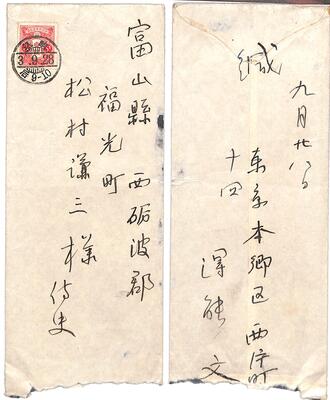 富山縣 西砺波郡
福光町
松村謙三様
侍史
3.9.28
后9-10
緘
九月廿八日
東京本郷区西片町
十四
澤 文